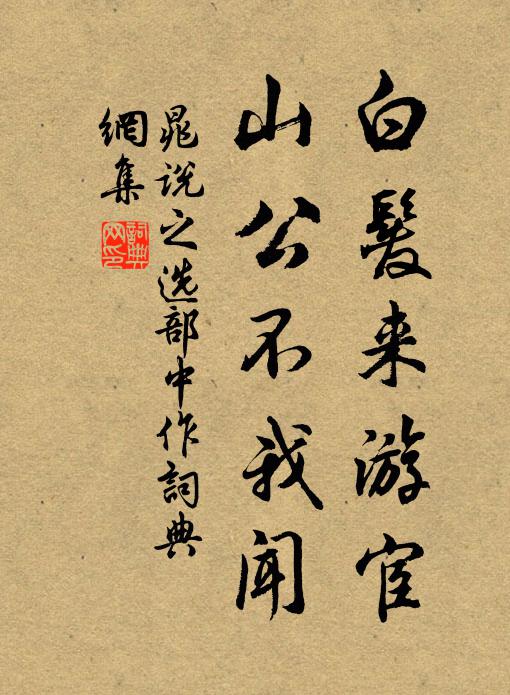 白髮来游宦
山公不我闻
晁说之选部中作詞典
網集
詞典
网印